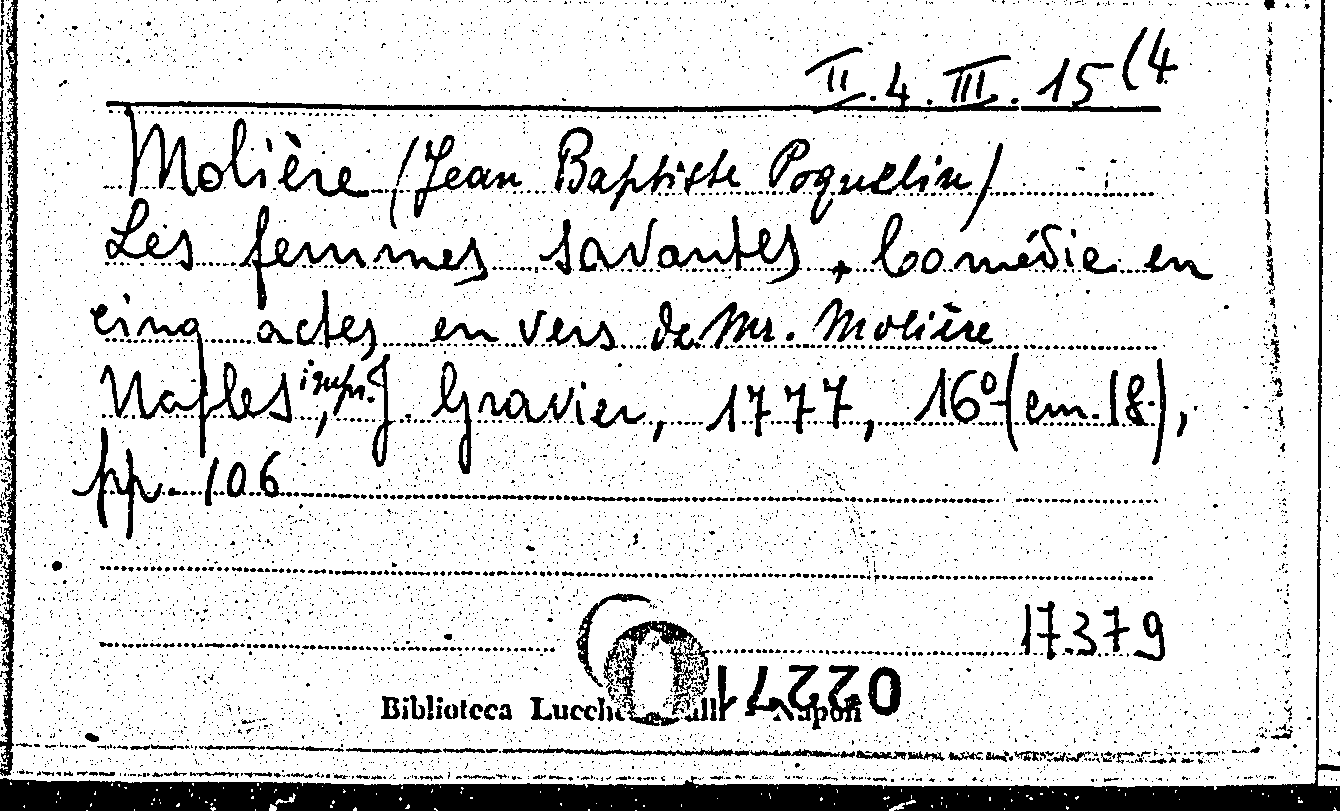 II.4.III.15(4
Molière (Jean Baptiste Poquelin)
Les femmes savantes, Comédie en
cinq actes en vers de Mr. Molière
Naples, impr. J. Gravier, 1777, 16º (cm. 18),
pp. 106
17379
02271
Biblioteca Napoli